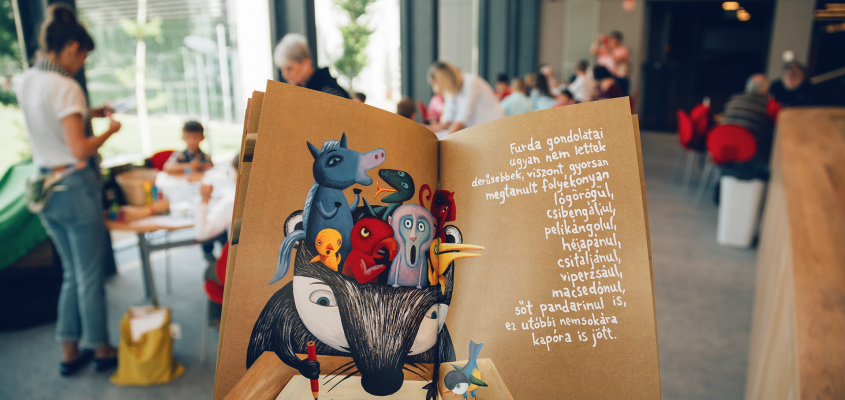 Furda gondolatai
ugyan nem lettek
derűsebbek, viszont gyorsan
megtanult folyékonyan
lógörögül,
csibengáliul,
pelikángolul,
héjapánul,
csitaljánul,
viperzsául,
macsedónul,
sőt pandarinul is,
ez utóbbi nemsokára
kapóra is jött.